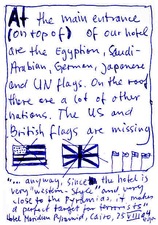 At the main entrance
(on top of) of our hotel
are the Egyption, Saudi-
Arabian, German, Japanese
and UN flags. On the roof
there are a lot of other
nations. The US and
British flags are missing
"... anyway, since the hotel is
very "western-style" and very
close to the Pyramids, it makes
a perfect target for terrorists"
Hotel Meridien Pyramids, Cairo, 25 VIII 94